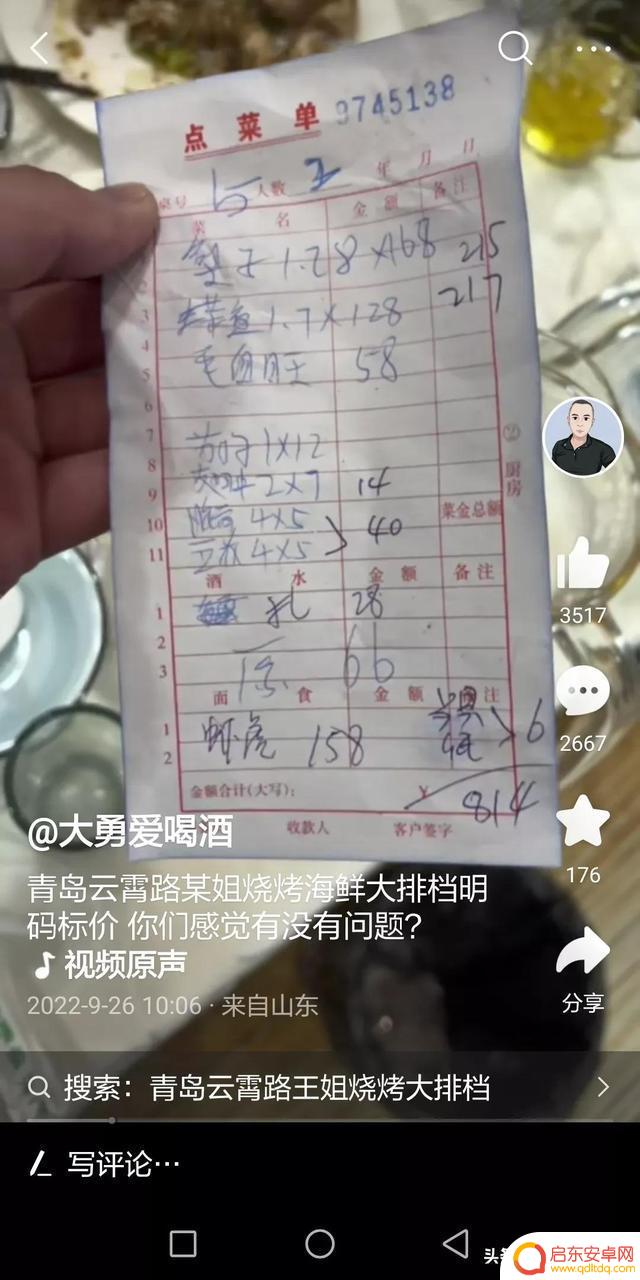 点菜单 9745138
桌号 人数 年 月 日
菜 名 金 额 备注
蛏子 1.28×168 215
1.7×128 217
3
4
毛血旺 58
5
6
7
茄子 1×12
8
2×7 14
9
厨房
菜金总额
10
4×5
40
11
4×5
酒 水 金 额 备 注
1
扎 28
2
3
66
面 食 金 额 备 注
1
虾虎 158
6
2
金额合计(大写): ¥ 814
收款人 客户签字
3517
2667
176
分享
@大勇爱喝酒
青岛云霄路某姐烧烤海鲜大排档明
码标价 你们感觉有没有问题?
视频原声
2022-9-26 10:06 · 来自山东
搜索: 青岛云霄路王姐烧烤大排档
写评论…
头条
启东安卓网
www.qdltdq.com